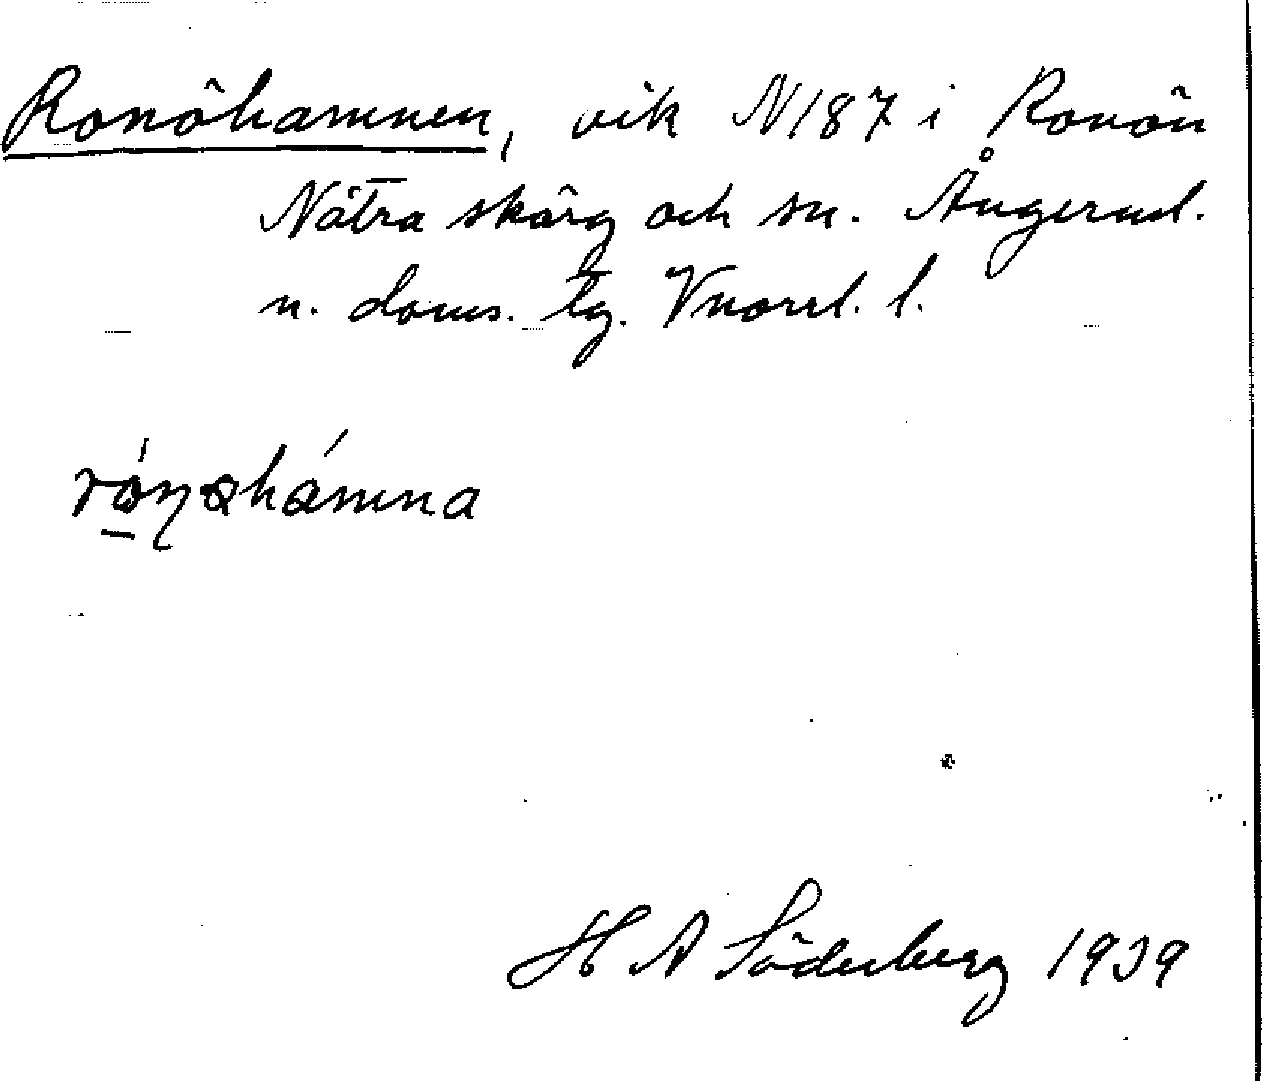 Ronöhamnen, vik N187 i Ronön
Nätra skärg och sn. Ångerml.
n. doms. lg. Vnorrl. l.
H A Söderberg 1939